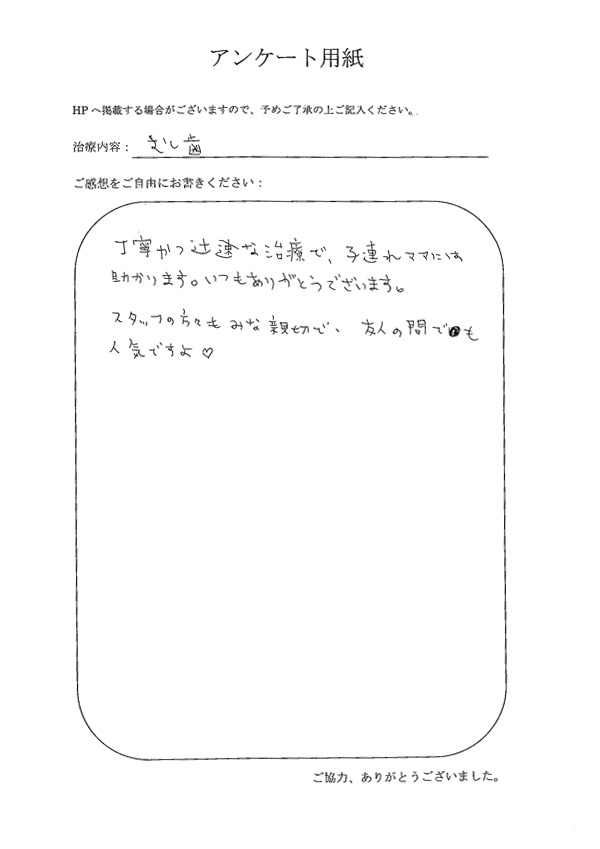 アンケート用紙
HPへ掲載する場合がございますので、予めご了承の上ご記入ください。
治療内容： むし歯
ご感想をご自由にお書きください：
丁寧かつ迅速な治療で、子連れママには
助かります。いつもありがとうでざいます。
スタッフの方々もみな親切で、友人の間でも
人気ですよ♡
ご協力、ありがとうございました。